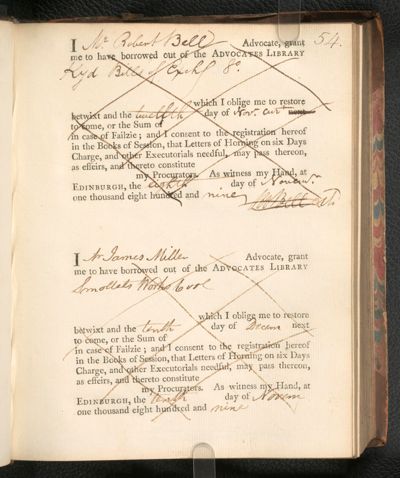 54.
I Mr. Robert Bell Advocate, grant
me to have borrowed out of the ADVOCATES LIBRARY
Kyd Bills of Exch
which I oblige me to restore
betwixt and the twelfth day of Novr. curt next
to come, or the Sum of
in case of Failzie ; and I consent to the registration hereof
in the Books of Session, that Letters of Horning on six Days
Charge, and other Executorials needful, may pass thereon,
as effeirs, and thereto constitute
my Procurators. As witness my Hand, at
EDINBURGH, the eighth day of Novemr.
one thousand eight hundred and nine
I Mr James Miller Advocate, grant
me to have borrowed out of the ADVOCATES LIBRARY
Smollets Works 6 vol
which I oblige me to restore
betwixt and the tenth day of Decem next
to come, or the Sum of
in case of Failzie ; and I consent to the registration hereof
in the Books of Session, that Letters of Horning on six Days
Charge, and other Executorials needful, may pass thereon,
as effeirs, and thereto constitute
my Procurators. As witness my Hand, at
EDINBURGH, the tenth day of Novem
one thousand eight hundred and nine